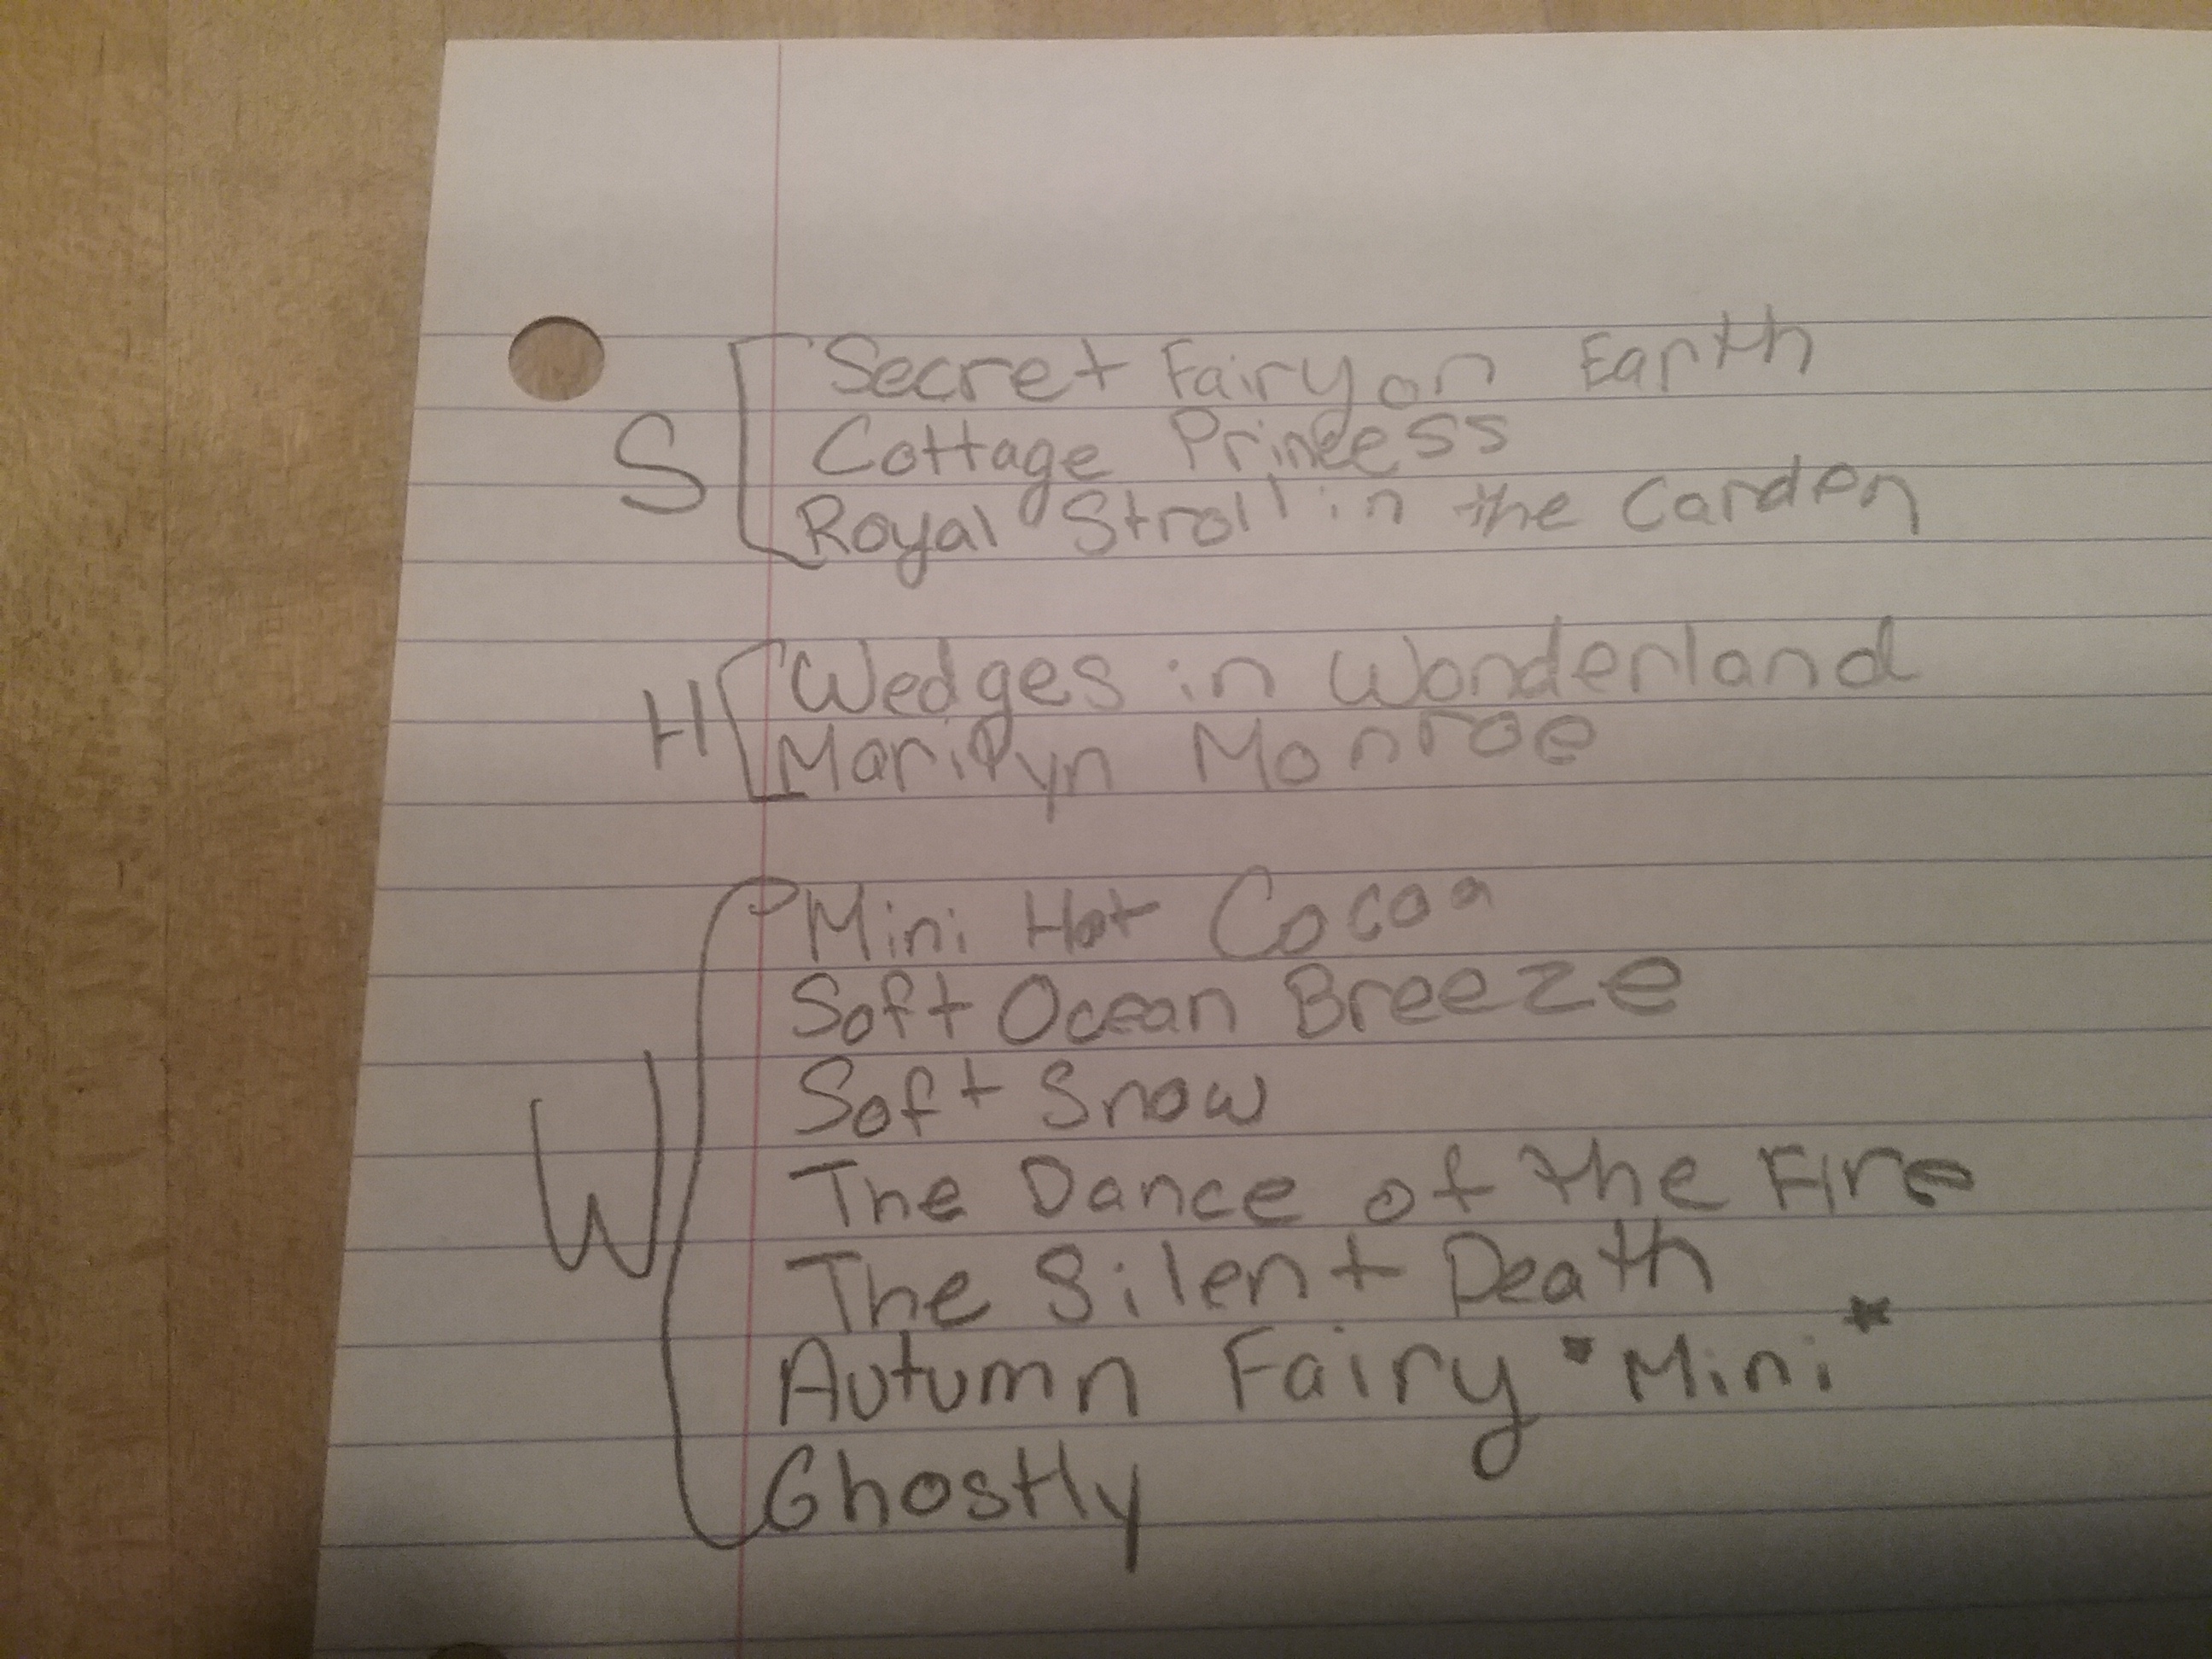 S
Secret Fairy on Earth
Cottage Princess
Royal Stroll in the Garden
H
Wedges in Wonderland
Marilyn Monroe
W
Mini Hot Cocoa
Soft Ocean Breeze
Soft Snow
The Dance of the Fire
The Silent Death
Autumn Fairy *Mini*
Ghostly